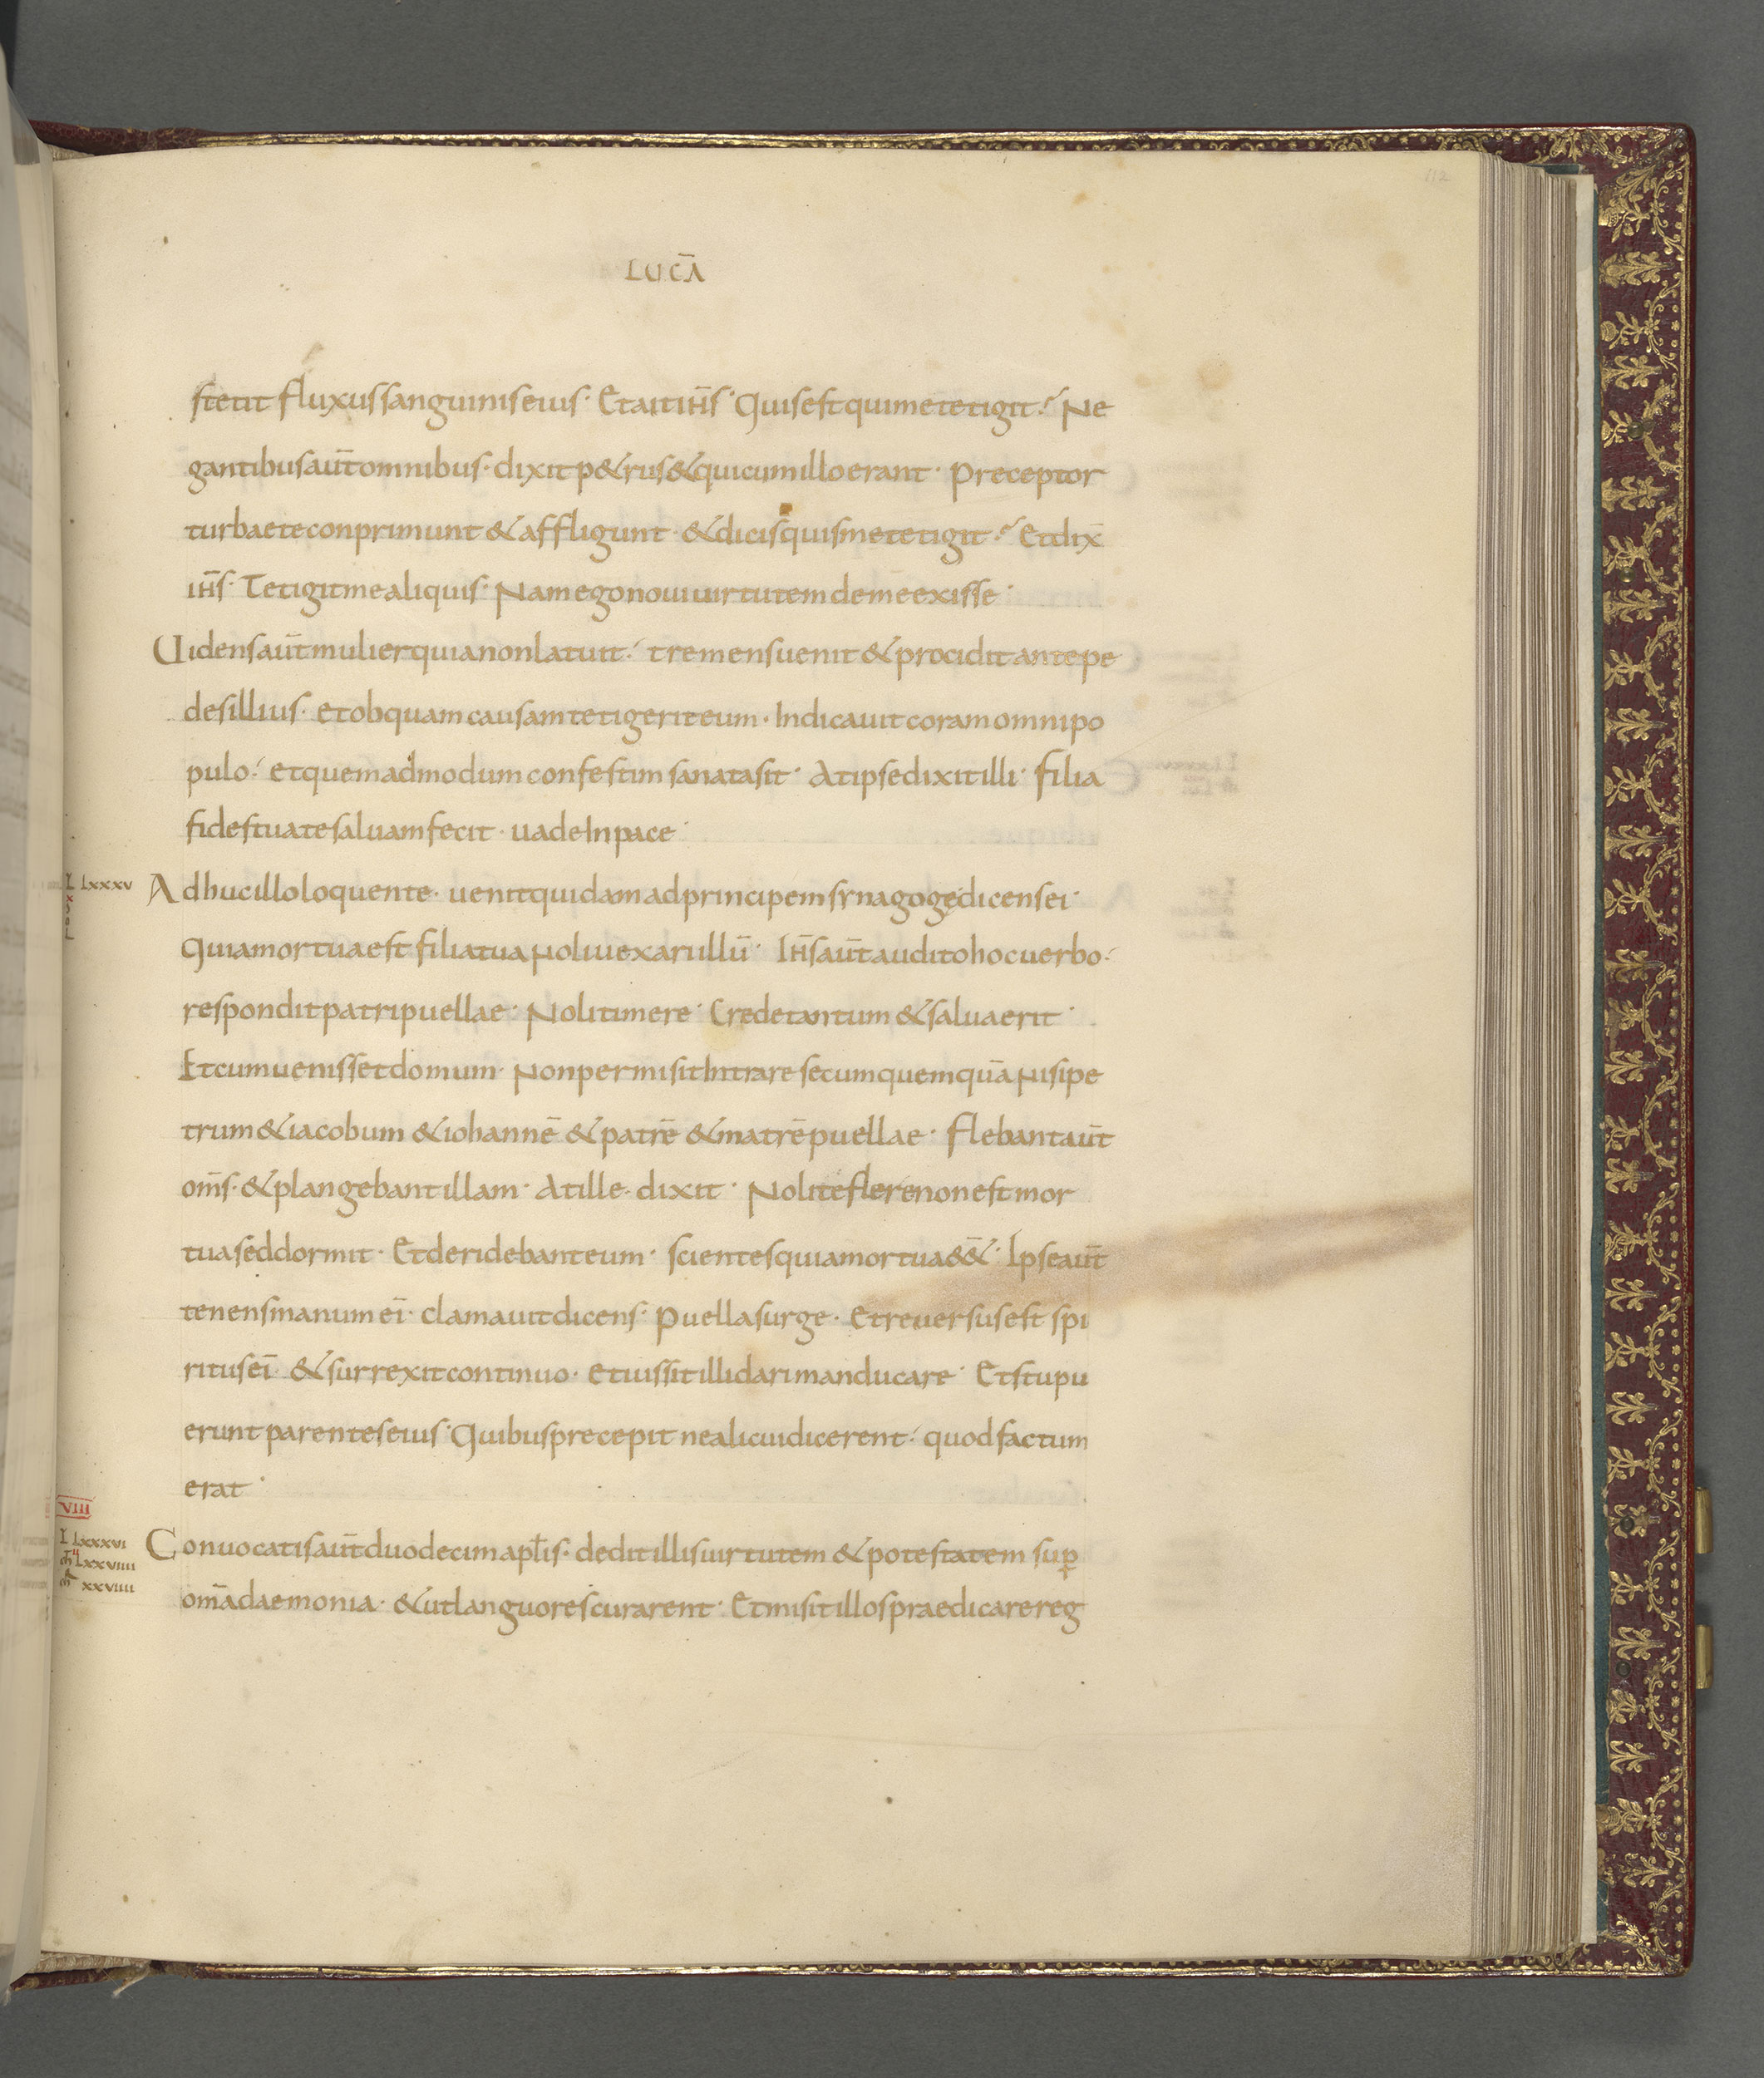 112
LUCĀ
stetit fluxus sanguinis eius · Et ait ih̄s · Quis est qui me tetigit? Ne
gantibus aūt omnibus · dixit p&rus & qui cum illo erant · Preceptor
turbae te conprimunt & affligunt · & dicis quis me tetigit? Et dix̄
ih̄s · Tetigit me aliquis · Nam ego noui uirtutem de me exisse ·
Uidens aūt mulier quia non latuit · tremens uenit & procidit ante pe
des illius · et ob quam causam tetigerit eum · Indicauit coram omni po
pulo · et quemadmodum confestim sanata sit · At ipse dixit illi · filia
fides tua te saluam fecit · uade In pace ·
LXXXV
Adhuc illo loquente · uenit quidam ad principem synagogę dicens ei ·
Quia mortua est filia tua Noli uexare illū · Ih̄s aūt audito hoc uerbo ·
respondit patri puellae · Noli timere · Crede tantum & salua erit ·
Et cum uenisset domum · Non permisit Intrare secum quemquā Nisi pe
trum & iacobum & iohannē & patrē & matrē puellae · flebant aūt
om̄s · & plangebant illam · At ille · dixit · Nolite flere non est mor
tua sed dormit · Et deridebant eum · scientes quia mortua e&̄ · Ipse aūt
tenens manum eī · clamauit dicens · Puella surge · Et reuersus est spi
ritus eī · & surrexit continuo · et iussit illi dari manducare · Et stupu
erunt parentes eius · Quibus precepit ne alicui dicerent · quod factum
erat ·
VIII
LXXXVI
LXXVIIII
XXVIIII
Conuocatis aūt duodecim apl̄is · dedit illis uirtutem & potestatem suꝑ
om̄a daemonia · & ut languores curarent · Et misit illos praedicare reg